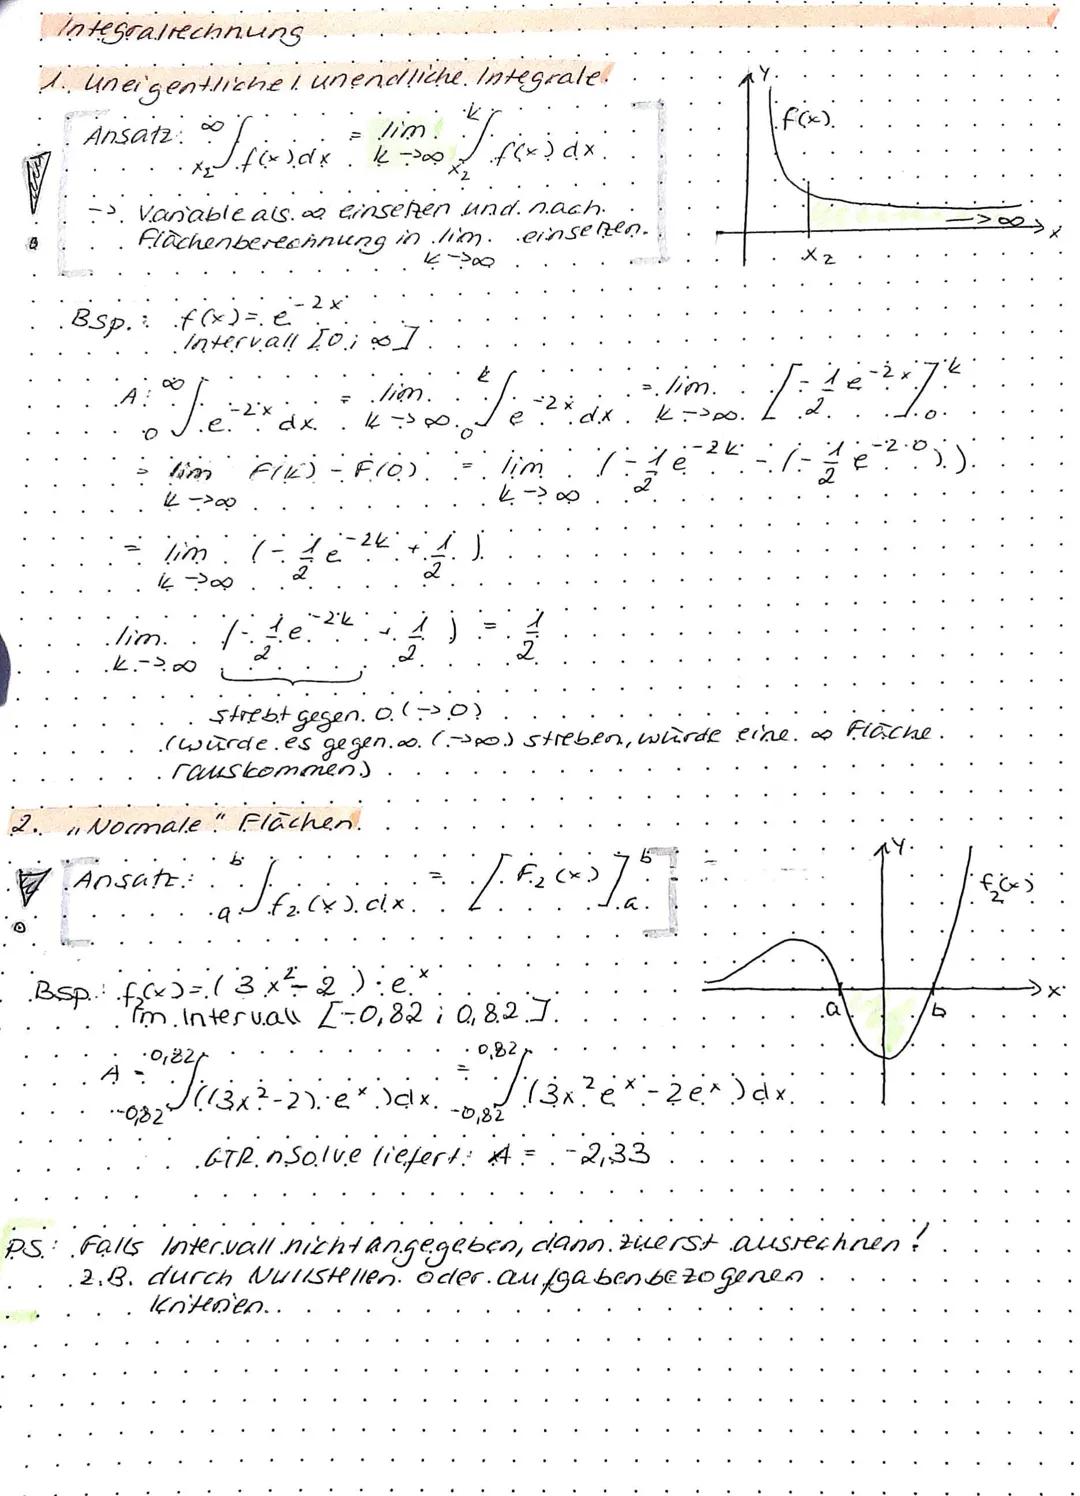 Integralrechnung
1. Uneigentliche / unendliche Integrale.
Ansatz: ∞ ∫ x₂ f(x) dx = lim k→∞ k ∫ x₂ f(x) dx.
→ Variable als ∞ einsetzen und nach
Flächenberechnung in lim k→∞ einsetzen.
y
f(x)
→∞
x
x₂
Bsp.: f(x) = e^-2x
Intervall [0; ∞]
A: ∞ ∫ 0 e^-2x dx = lim k→∞ k ∫ 0 e^-2x dx = lim k→∞ [-1/2 e^-2x] k 0
= lim k→∞ F(k) - F(0) = lim k→∞ (-1/2 e^-2k - (-1/2 e^-2·0)).
= lim k→∞ (-1/2 e^-2k + 1/2)
lim k→∞ (-1/2 e^-2k + 1/2) = 1/2
strebt gegen 0 (→0)
(würde es gegen ∞ (→∞) streben, würde eine ∞ Fläche
rauskommen)
2. „Normale" Flächen
Ansatz: b ∫ a f₂(x) dx = [F₂(x)] b a =
y
f₂(x)
x
a
b
Bsp.: f₂(x) = (3x² - 2) · e^x
Im Intervall [-0,82 ; 0,82]
A = 0,82 ∫ -0,82 ((3x²-2) · e^x) dx = 0,82 ∫ -0,82 (3x² e^x - 2e^x) dx.
GTR nSolve liefert: A = -2,33
P.S.: Falls Intervall nicht angegeben, dann zuerst ausrechnen!
z.B. durch Nullstellen oder aufgabenbezogenen
Kriterien.